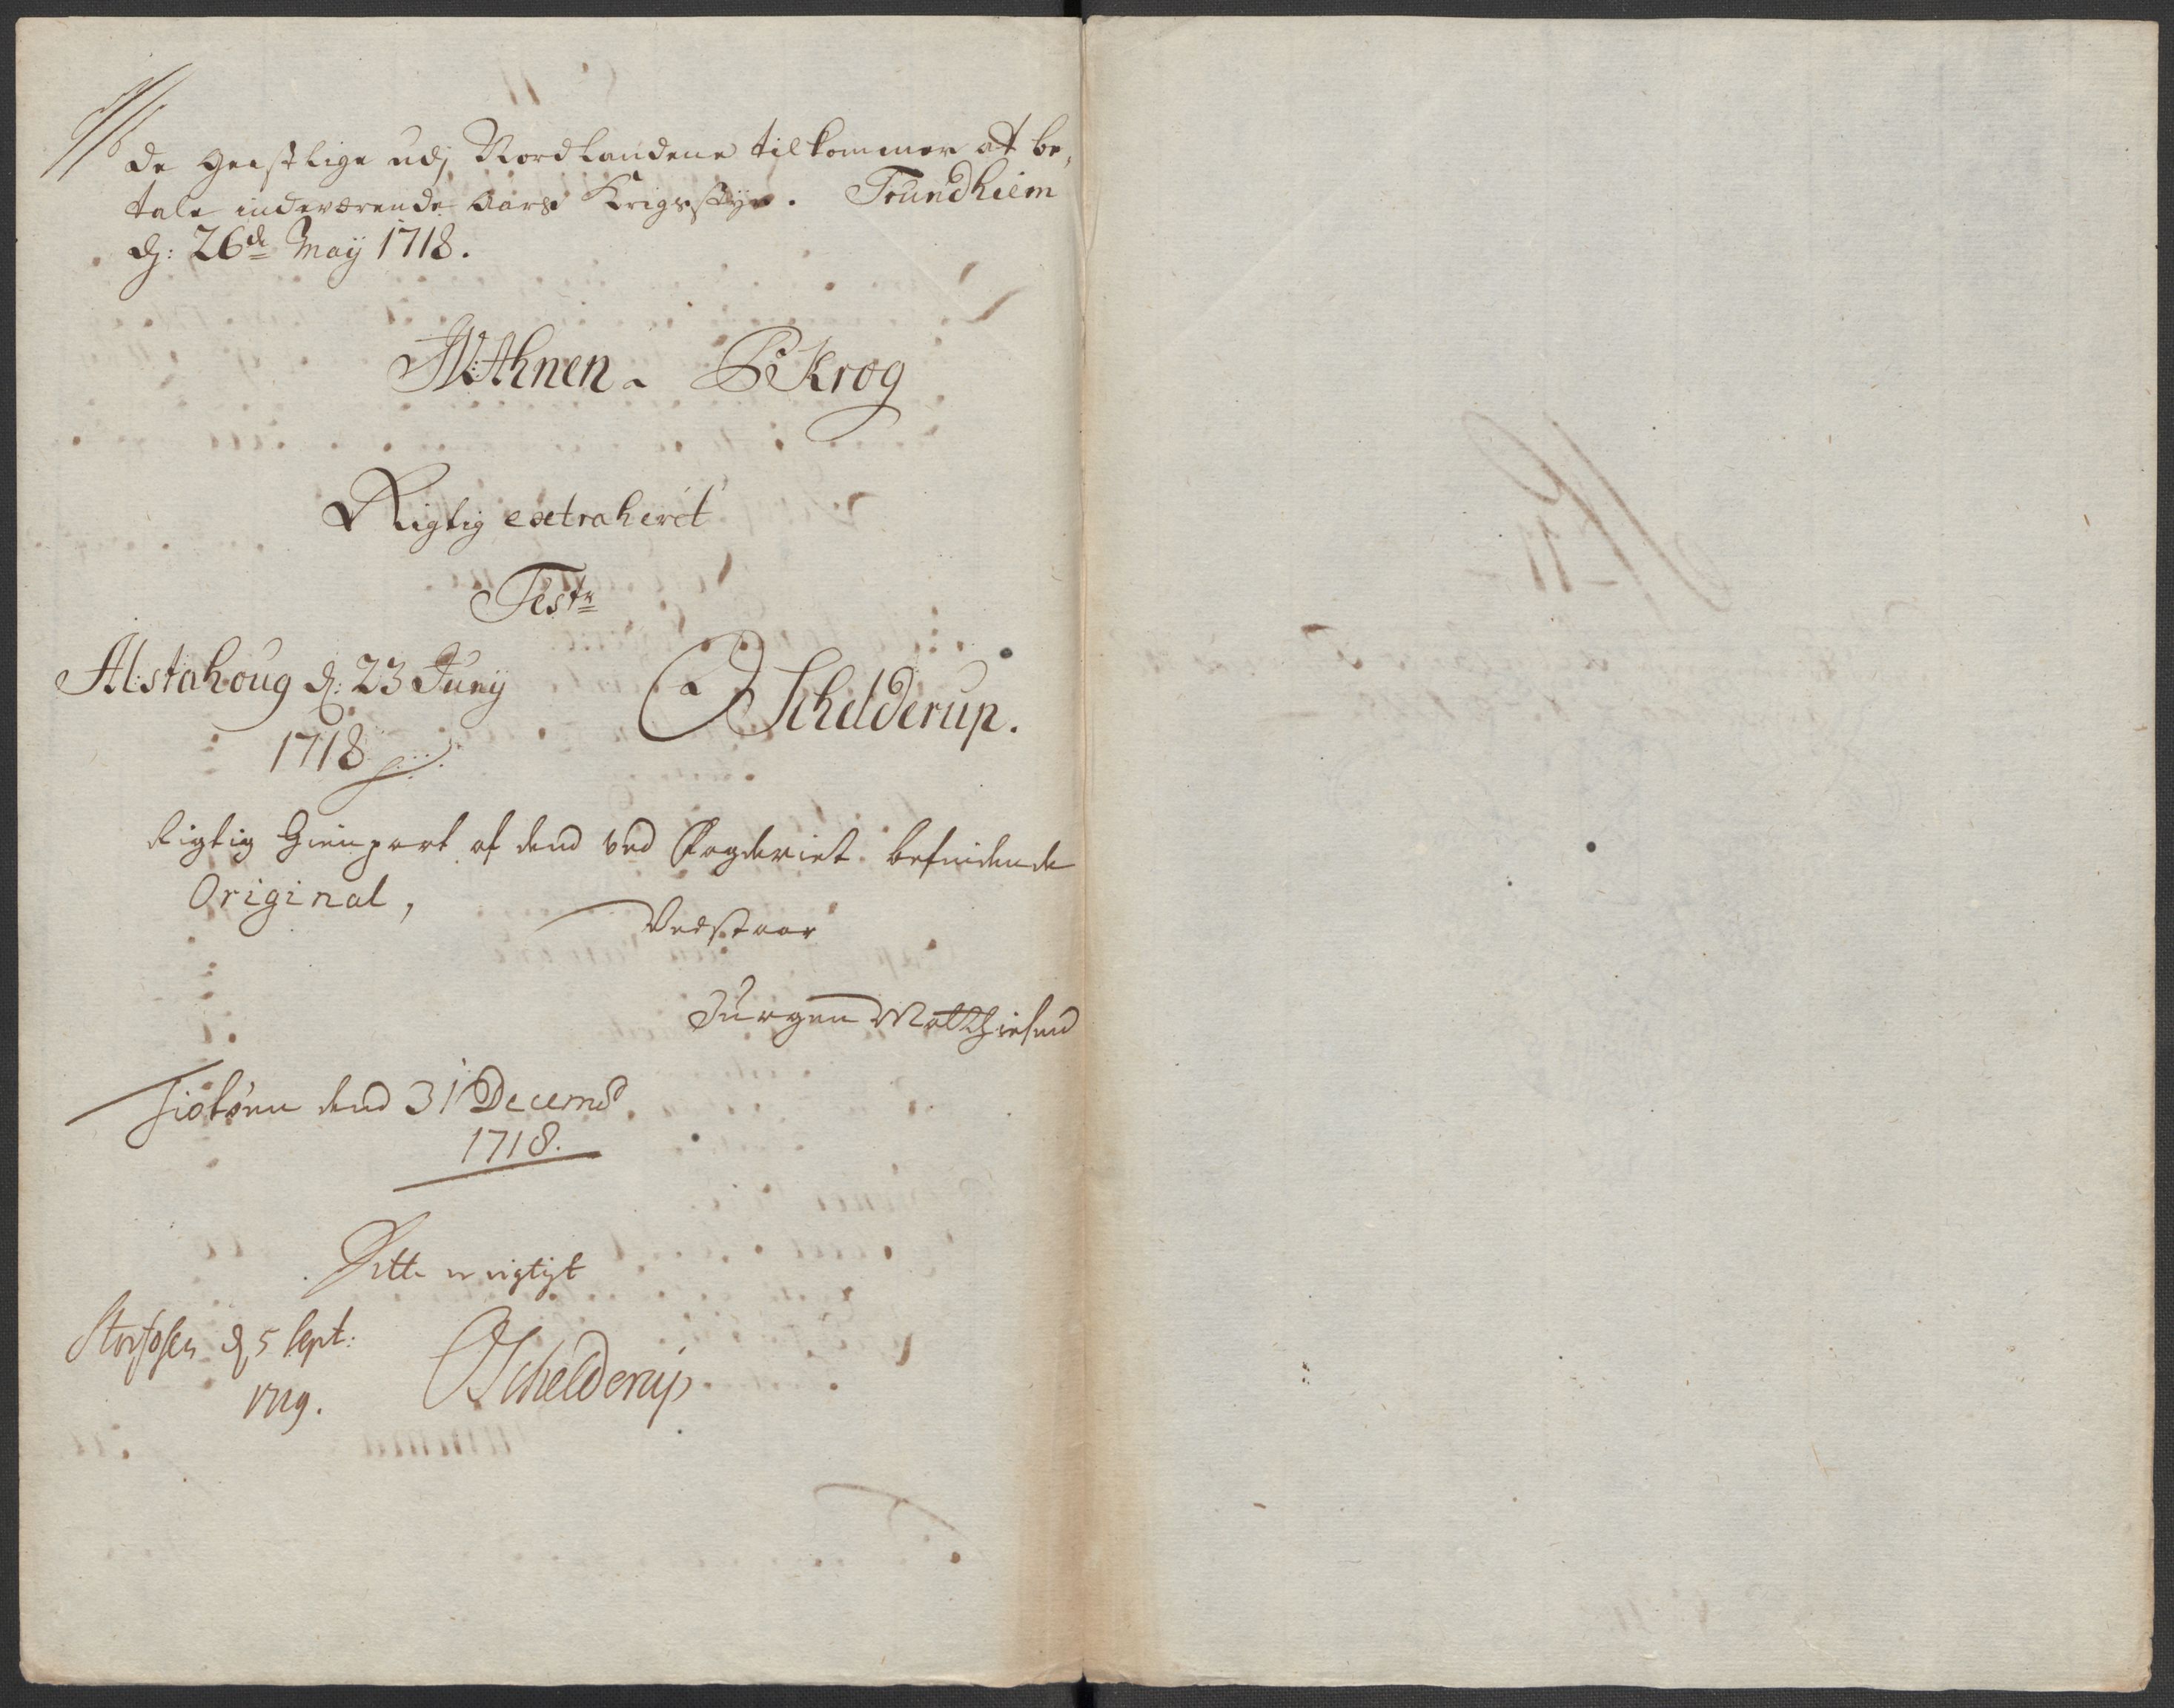 de geistlige udj Nordlandene tilkommer at be,
tale indeværende Aars Krigsstyr. Trundhiem
dj: 26de Maÿ 1718.
JVAhnen. PKrog
Rigtig extraherit
Test
Alstahoug d: 23 Junij OSchelderup.
1718
Rigtig Gienpart af dend ved Fogderiet befindende
Original,
Vedstaar
Jurgen Matthiesend
Tiøtøen dend 31 Decemb
1718.
Dette er rigtigt
Storfosen d 5 Sept: OSchelderup
1719.